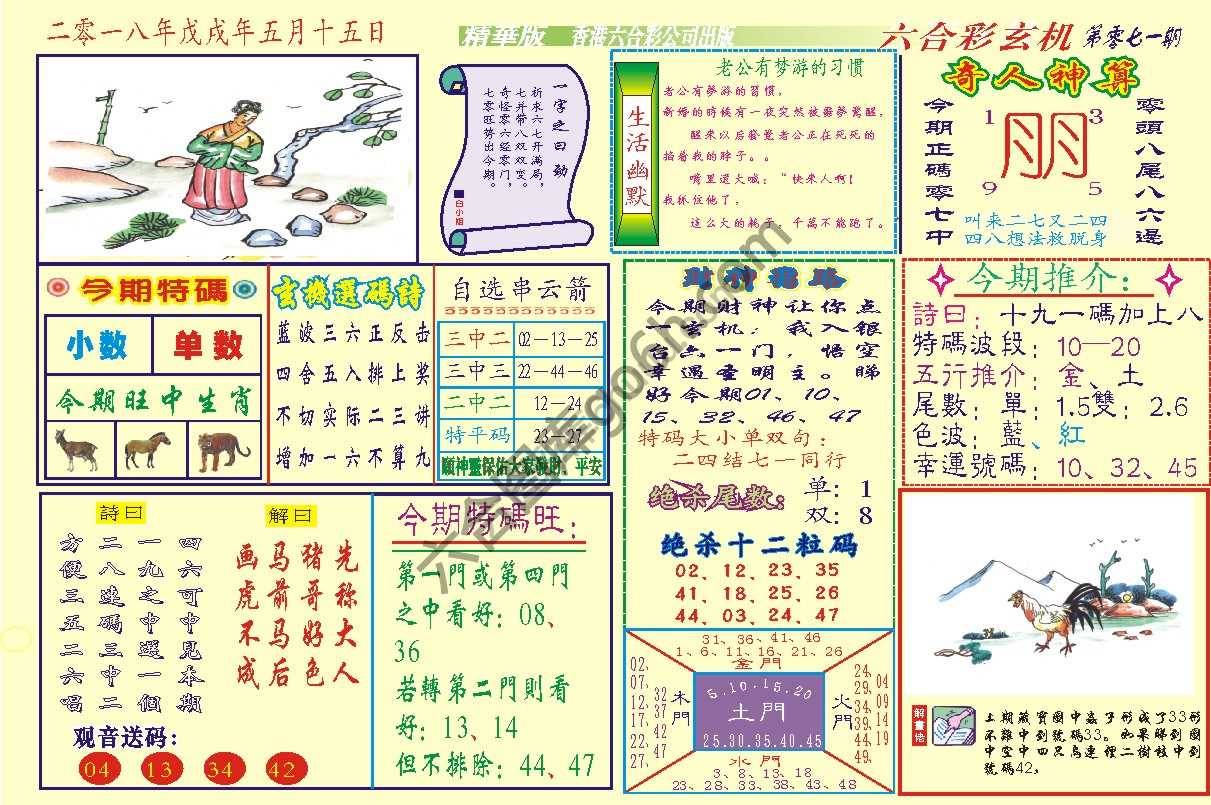 二零一八年戊戌年五月十五日
精華版 香港六合彩公司出版
六合彩玄机 第零七一期
一字之曰劲
祈求六七开满局，
七并带八双双变。
奇怪零六经零门，
七零旺势出今期。
白小姐
生活幽默
老公有梦游的习惯
老公有夢游的習慣，
新婚的時候有一夜突然被噩夢驚醒，
醒来以后發覺老公正在死死的
掐着我的脖子。。
嘴里還大喊：“快来人啊！
我抓住他了，
这么大的耗子，千萬不能跑了。
奇人神算
今期正碼零七中
1 3
9 5
零頭八尾八六邊
叫来二七又二四
四八想法救脱身
今期特碼
小数 单数
今期旺中生肖
玄機選碼詩
蓝波三六正反击
四舍五入排上奖
不切实际二三讲
增加一六不算九
自选串云箭
三中二 02—13—25
三中三 22—44—46
二中二 12—24
特平码 23—27
願神靈保佑大家發財、平安
今期财神让你点
一玄机：我入银
台六一门，悟空
幸遇圣明主。睇
好今期01、10、
15、32、46、47
特码大小单双句：
二四结七一同行
绝杀尾数： 单：1
双：8
绝杀十二粒码
02、12、23、35
41、18、25、26
44、03、24、47
今期推介：
詩曰：十九一碼加上八
特碼波段：10—20
五行推介：金、土
尾數：單：1.5雙：2.6
色波：藍、紅
幸運號碼：10、32、45
詩曰
四六可中見本期
一九之中選一個
二八連碼三中二
方便三五二六唱
解曰
先称大人
猪哥好色
马前马后
画虎不成
观音送码：
04 13 34 42
今期特碼旺：
第一門或第四門
之中看好：08、
36
若轉第二門則看
好：13、14
但不排除：44、47
31、36、41、46
1、6、11、16、21、26
金門
02、07、12、17、22、27、
32、37、42、47
木門
5.10.15.20
土門
25.30.35.40.45
火門
24、29、34、39、44、49、
04、09、14、19
水門
3、8、13、18
23、28、33、38、43、48
解畫悟
上期藏寶圖中
形成了33形
不難中到號碼33。如果睇到圖
中空中四只鸟連裡二樹枝中到
號碼42，
六合图库go6h.com